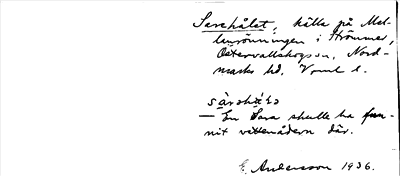 Serehålet, källa på Mel-
lanrönningen i Strömmer,
Östervallskogs sn, Nord-
marks hd, Vrml l.
— En Sara skulle ha fun-
nit vattenådern där.
E. Andersson 1936.